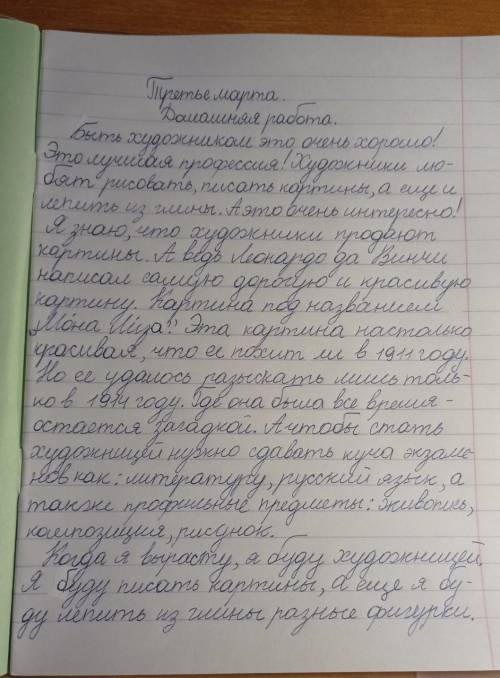 Третье марта.
Домашняя работа.
Быть художником это очень хорошо!
Это лучшая профессия! Художники лю-
бят рисовать, писать картины, а еще и
лепить из глины. А это очень интересно!
Я знаю, что художники продают
картины. А ведь Леонардо да Винчи
написал самую дорогую и красивую
картину. Картина под названием
"Мона Лиза". Эта картина настолько
красивая, что ее похит ли в 1911 году.
Но ее удалось разыскать лишь толь-
ко в 1914 году. Где она была все время-
остается загадкой. А чтобы стать
художницей нужно сдавать куча экзаме-
нов как: литературу, русский язык, а
также профильные предметы: живопись,
композиция, рисунок.
Когда я вырасту, я буду художницей.
Я буду писать картины, а еще я бу-
ду лепить из глины разные фигурки.